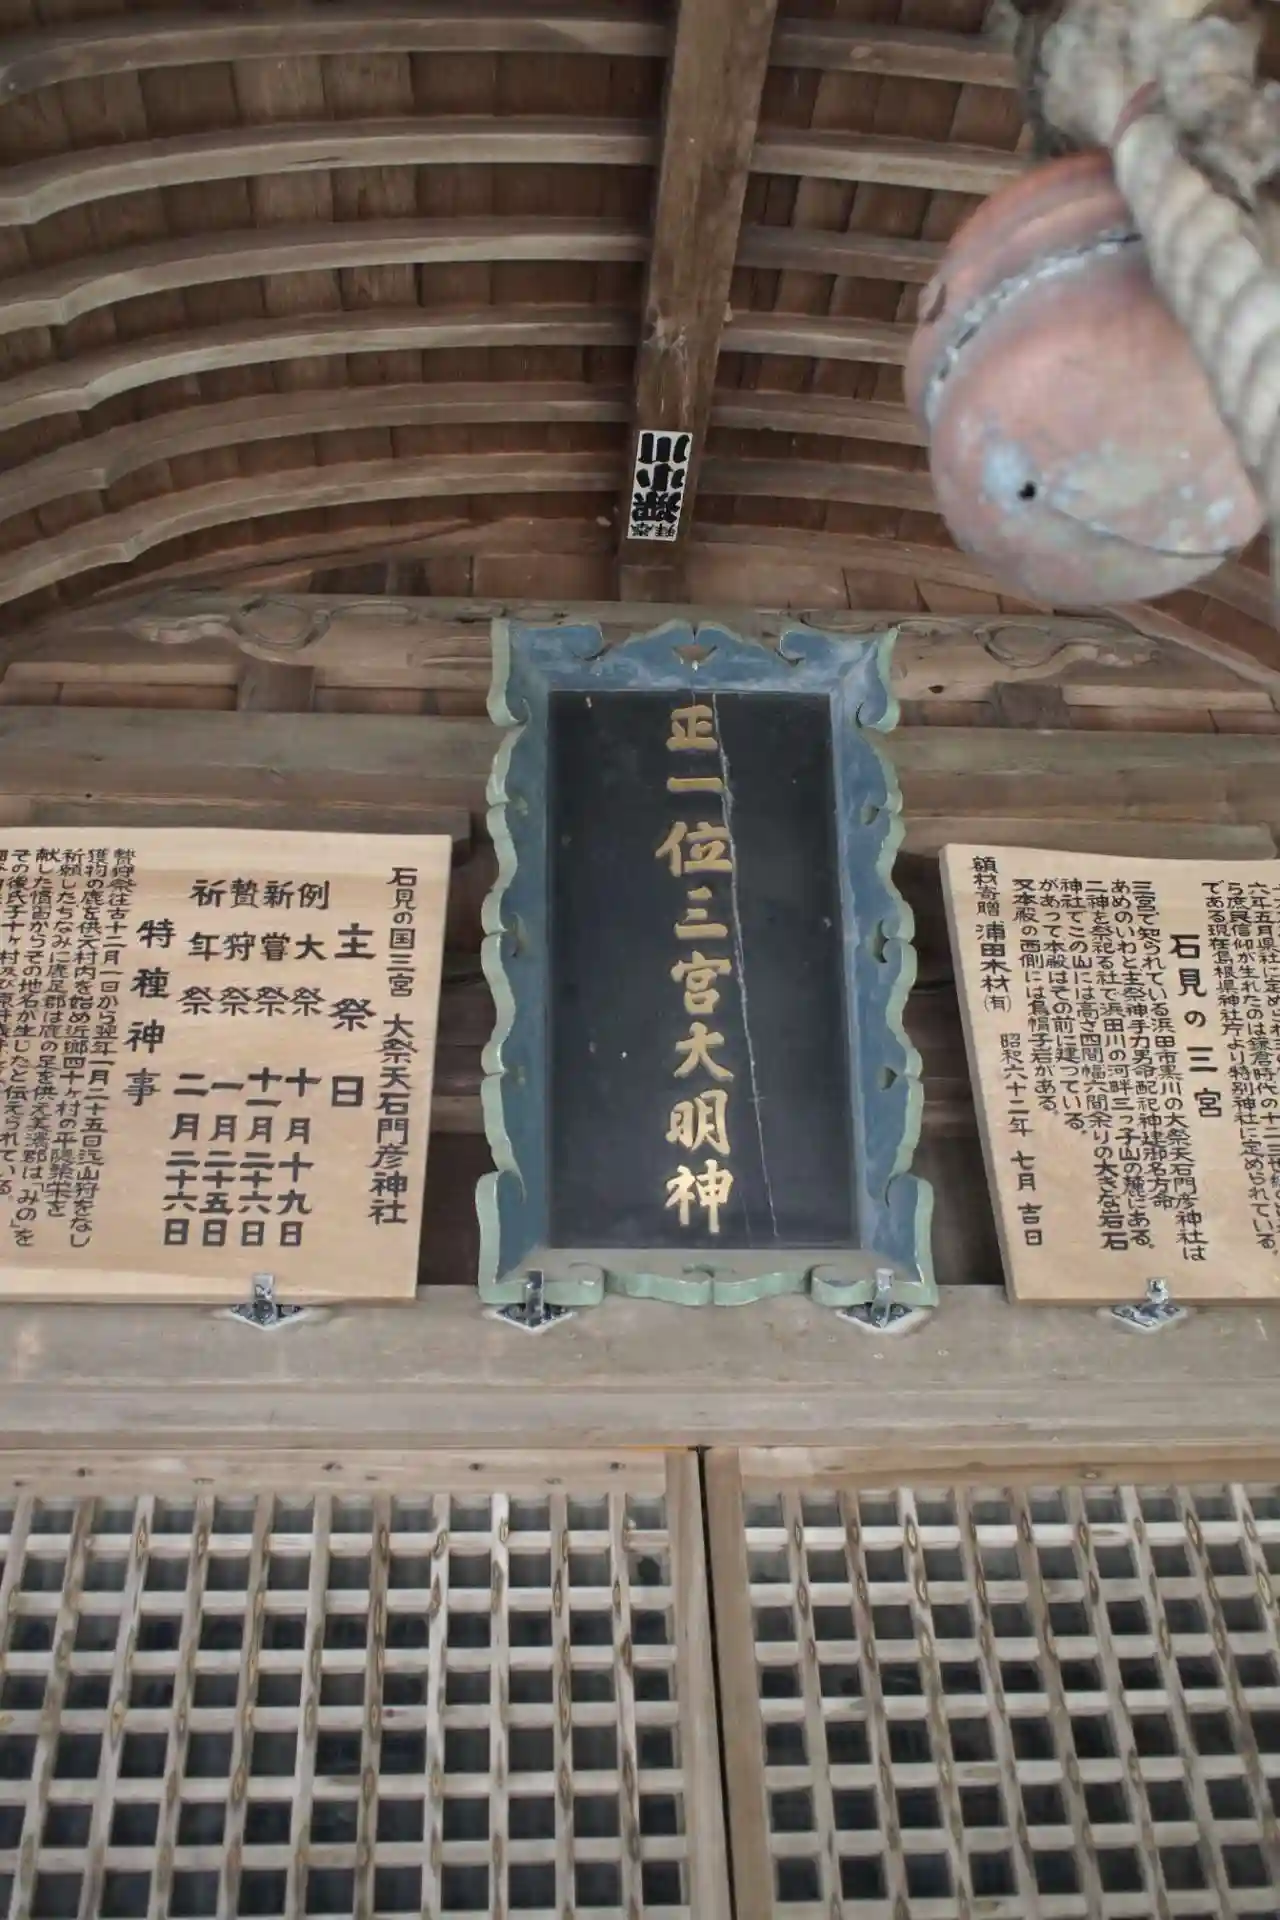 正一位三宮大明神
石見の三宮
三宮で知られている浜田市黒川の大祭天石門彦神社は
あめのいわと主祭神手力男命配祀神建御名方命
二神を祭祀る社で浜田川の河畔三っ子山の麓にある。
神社でこの山には高さ四間幅六間余りの大きな岩石
があって本殿はその前に建っている。
又本殿の西側には烏帽子岩がある。
額材寄贈 浦田木材(有) 昭和六十二年 七月 吉日
六年五月県社に定められ
ら庶民信仰が生れたのは鎌倉時代の
である現在島根県神社庁より特別神社に定められている。
石見の国三宮 大祭天石門彦神社
主祭日
例大祭 十月十九日
新嘗祭 十一月二十六日
贄狩祭 一月二十五日
祈年祭 二月二十六日
特種神事
贄狩祭往古十二月一日から翌年一月二十五日迄山狩をなし
獲物の鹿を供え村内を始め近郷四十ヶ村の平
祈願したちなみに鹿足郡は鹿の足を供え美濃郡は「みの」を
献した情由からその地名が生じたと伝えられている。
その後氏子十ヶ村及び
拝 小川